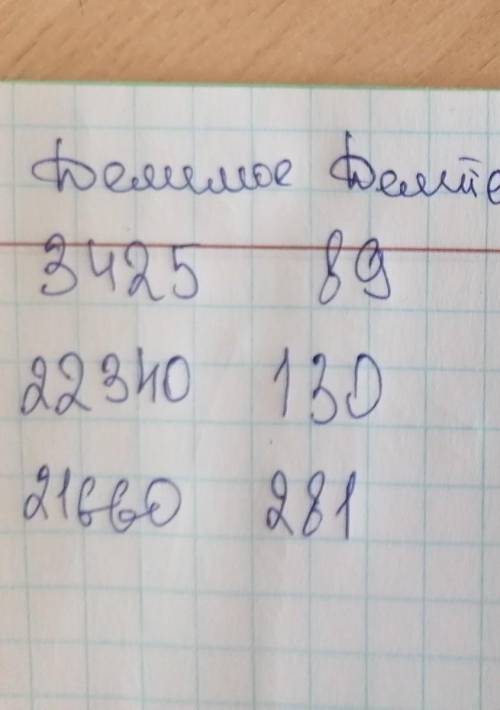 Делимое Делите
3425 89
22340 130
21660 281